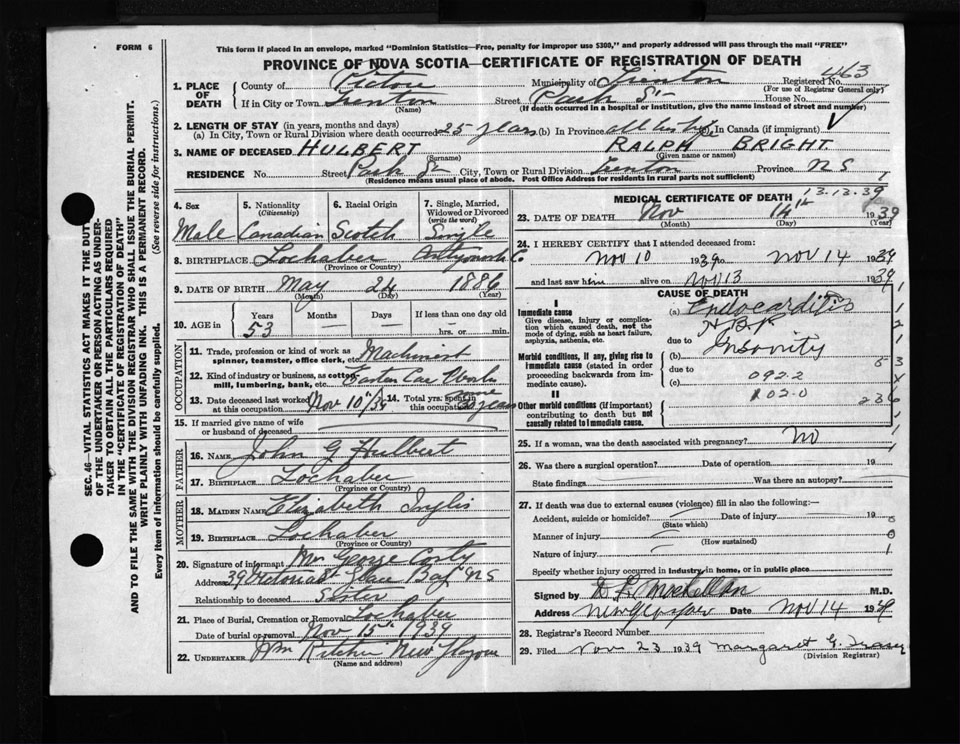 FORM 6
This form if placed in an envelope, marked "Dominion Statistics—Free, penalty for improper use $300," and properly addressed will pass through the mail "FREE"
PROVINCE OF NOVA SCOTIA—CERTIFICATE OF REGISTRATION OF DEATH
Registered No. 463
(For use of Registrar General only)
1. PLACE OF DEATH
County of Pictou Municipality of Trenton
If in City or Town Trenton (Name) Street Park St House No.
(If death occurred in a hospital or institution, give the name instead of street and number)
2. LENGTH OF STAY (in years, months and days)
(a) In City, Town or Rural Division where death occurred 25 years (b) In Province all his life (c) In Canada (if immigrant)
3. NAME OF DECEASED HULBERT (Surname) RALPH BRIGHT (Given name or names)
RESIDENCE No. Street Park St City, Town or Rural Division Trenton Province N S
(Residence means usual place of abode. Post Office Address for residents in rural parts not sufficient)
SEC. 46—VITAL STATISTICS ACT MAKES IT THE DUTY
OF THE UNDERTAKER OR PERSON ACTING AS UNDER-
TAKER TO OBTAIN ALL THE PARTICULARS REQUIRED
IN THE "CERTIFICATE OF REGISTRATION OF DEATH"
AND TO FILE THE SAME WITH THE DIVISION REGISTRAR WHO SHALL ISSUE THE BURIAL PERMIT.
WRITE PLAINLY WITH UNFADING INK. THIS IS A PERMANENT RECORD.
Every item of information should be carefully supplied. (See reverse side for instructions.)
4. Sex 5. Nationality (Citizenship) 6. Racial Origin 7. Single, Married, Widowed or Divorced (write the word)
Male Canadian Scotch Single
8. BIRTHPLACE Lochaber Antigonish Co.
(Province or Country)
9. DATE OF BIRTH May 24 1886
(Month) (Day) (Year)
10. AGE in Years Months Days If less than one day old
53 — — hrs. or min.
OCCUPATION
11. Trade, profession or kind of work as spinner, teamster, office clerk, etc. Machinist
12. Kind of industry or business, as cotton-mill, lumbering, bank, etc. Eastern Car Works
13. Date deceased last worked at this occupation Nov 10th/39 14. Total yrs. spent in this occupation years
15. If married give name of wife or husband of deceased
FATHER
16. NAME John G Hulbert
17. BIRTHPLACE Lochaber
(Province or Country)
MOTHER
18. MAIDEN NAME Elizabeth Inglis
19. BIRTHPLACE Lochaber
(Province or Country)
20. Signature of informant Mrs George
Address 39 Victoria St Glace Bay NS
Relationship to deceased Sister
21. Place of Burial, Cremation or Removal Lochaber
Date of burial or removal Nov 15th 1939
22. UNDERTAKER New Glasgow
(Name and address)
MEDICAL CERTIFICATE 13.12.39
23. DATE OF DEATH Nov 14th 1939
(Month) (Day) (Year)
24. I HEREBY CERTIFY that I attended deceased from:
Nov 10 1939 to Nov 14 1939
and last saw him alive on Nov 13 1939
CAUSE OF DEATH
I
Immediate cause
Give disease, injury or complication which caused death, not the mode of dying, such as heart failure, asphyxia, asthenia, etc.
(a) Endocarditis
due to
Morbid conditions, if any, giving rise to immediate cause (stated in order proceeding backwards from immediate cause).
(b)
due to
(c) 092.2
II
Other morbid conditions (if important) contributing to death but not causally related to immediate cause.
102.0
25. If a woman, was the death associated with pregnancy? No
26. Was there a surgical operation? Date of operation 19
State findings Was there an autopsy?
27. If death was due to external causes (violence) fill in also the following:—
Accident, suicide or homicide? (State which) Date of injury 19
Manner of injury (How sustained)
Nature of injury
Specify whether injury occurred in industry, in home, or in public place
Signed by M.D.
Address New Glasgow Date Nov 14 1939
28. Registrar's Record Number
29. Filed Nov 23 1939 Margaret G.
(Division Registrar)